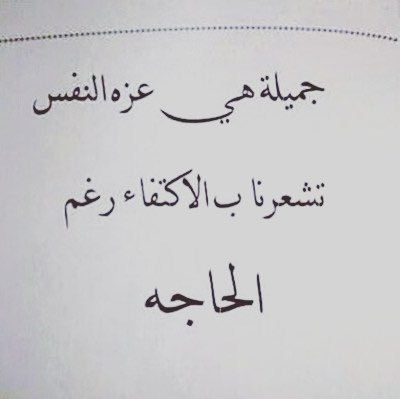 جميلة هي عزه النفس
تشعرنا ب الاكتفاء رغم
الحاجه